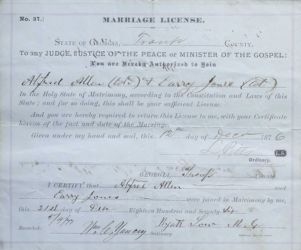 No. 37.
MARRIAGE LICENSE.
STATE OF County.
To any JUDGE, JUSTICE OF THE PEACE or MINISTER OF THE GOSPEL:
You are Hereby Authorized to Join
Alfred Allen (Col.) & Carry Jones (Col.)
In the Holy State of Matrimony, according to the Constitution and Laws of this
State; and for so doing, this shall be your sufficient License.
And you are hereby required to return this License to me, with your Certificate
hereon of the fact and date of the Marriage.
Given under my hand and seal, this day of Dec 1876
Ordinary.
County.
I CERTIFY that Alfred Allen
and Carry Jones were joined in Matrimony by me
this 21st day of Dec Eighteen Hundred and Seventy Six
Recorded
Wm. C. Yancey Wyatt M. G.